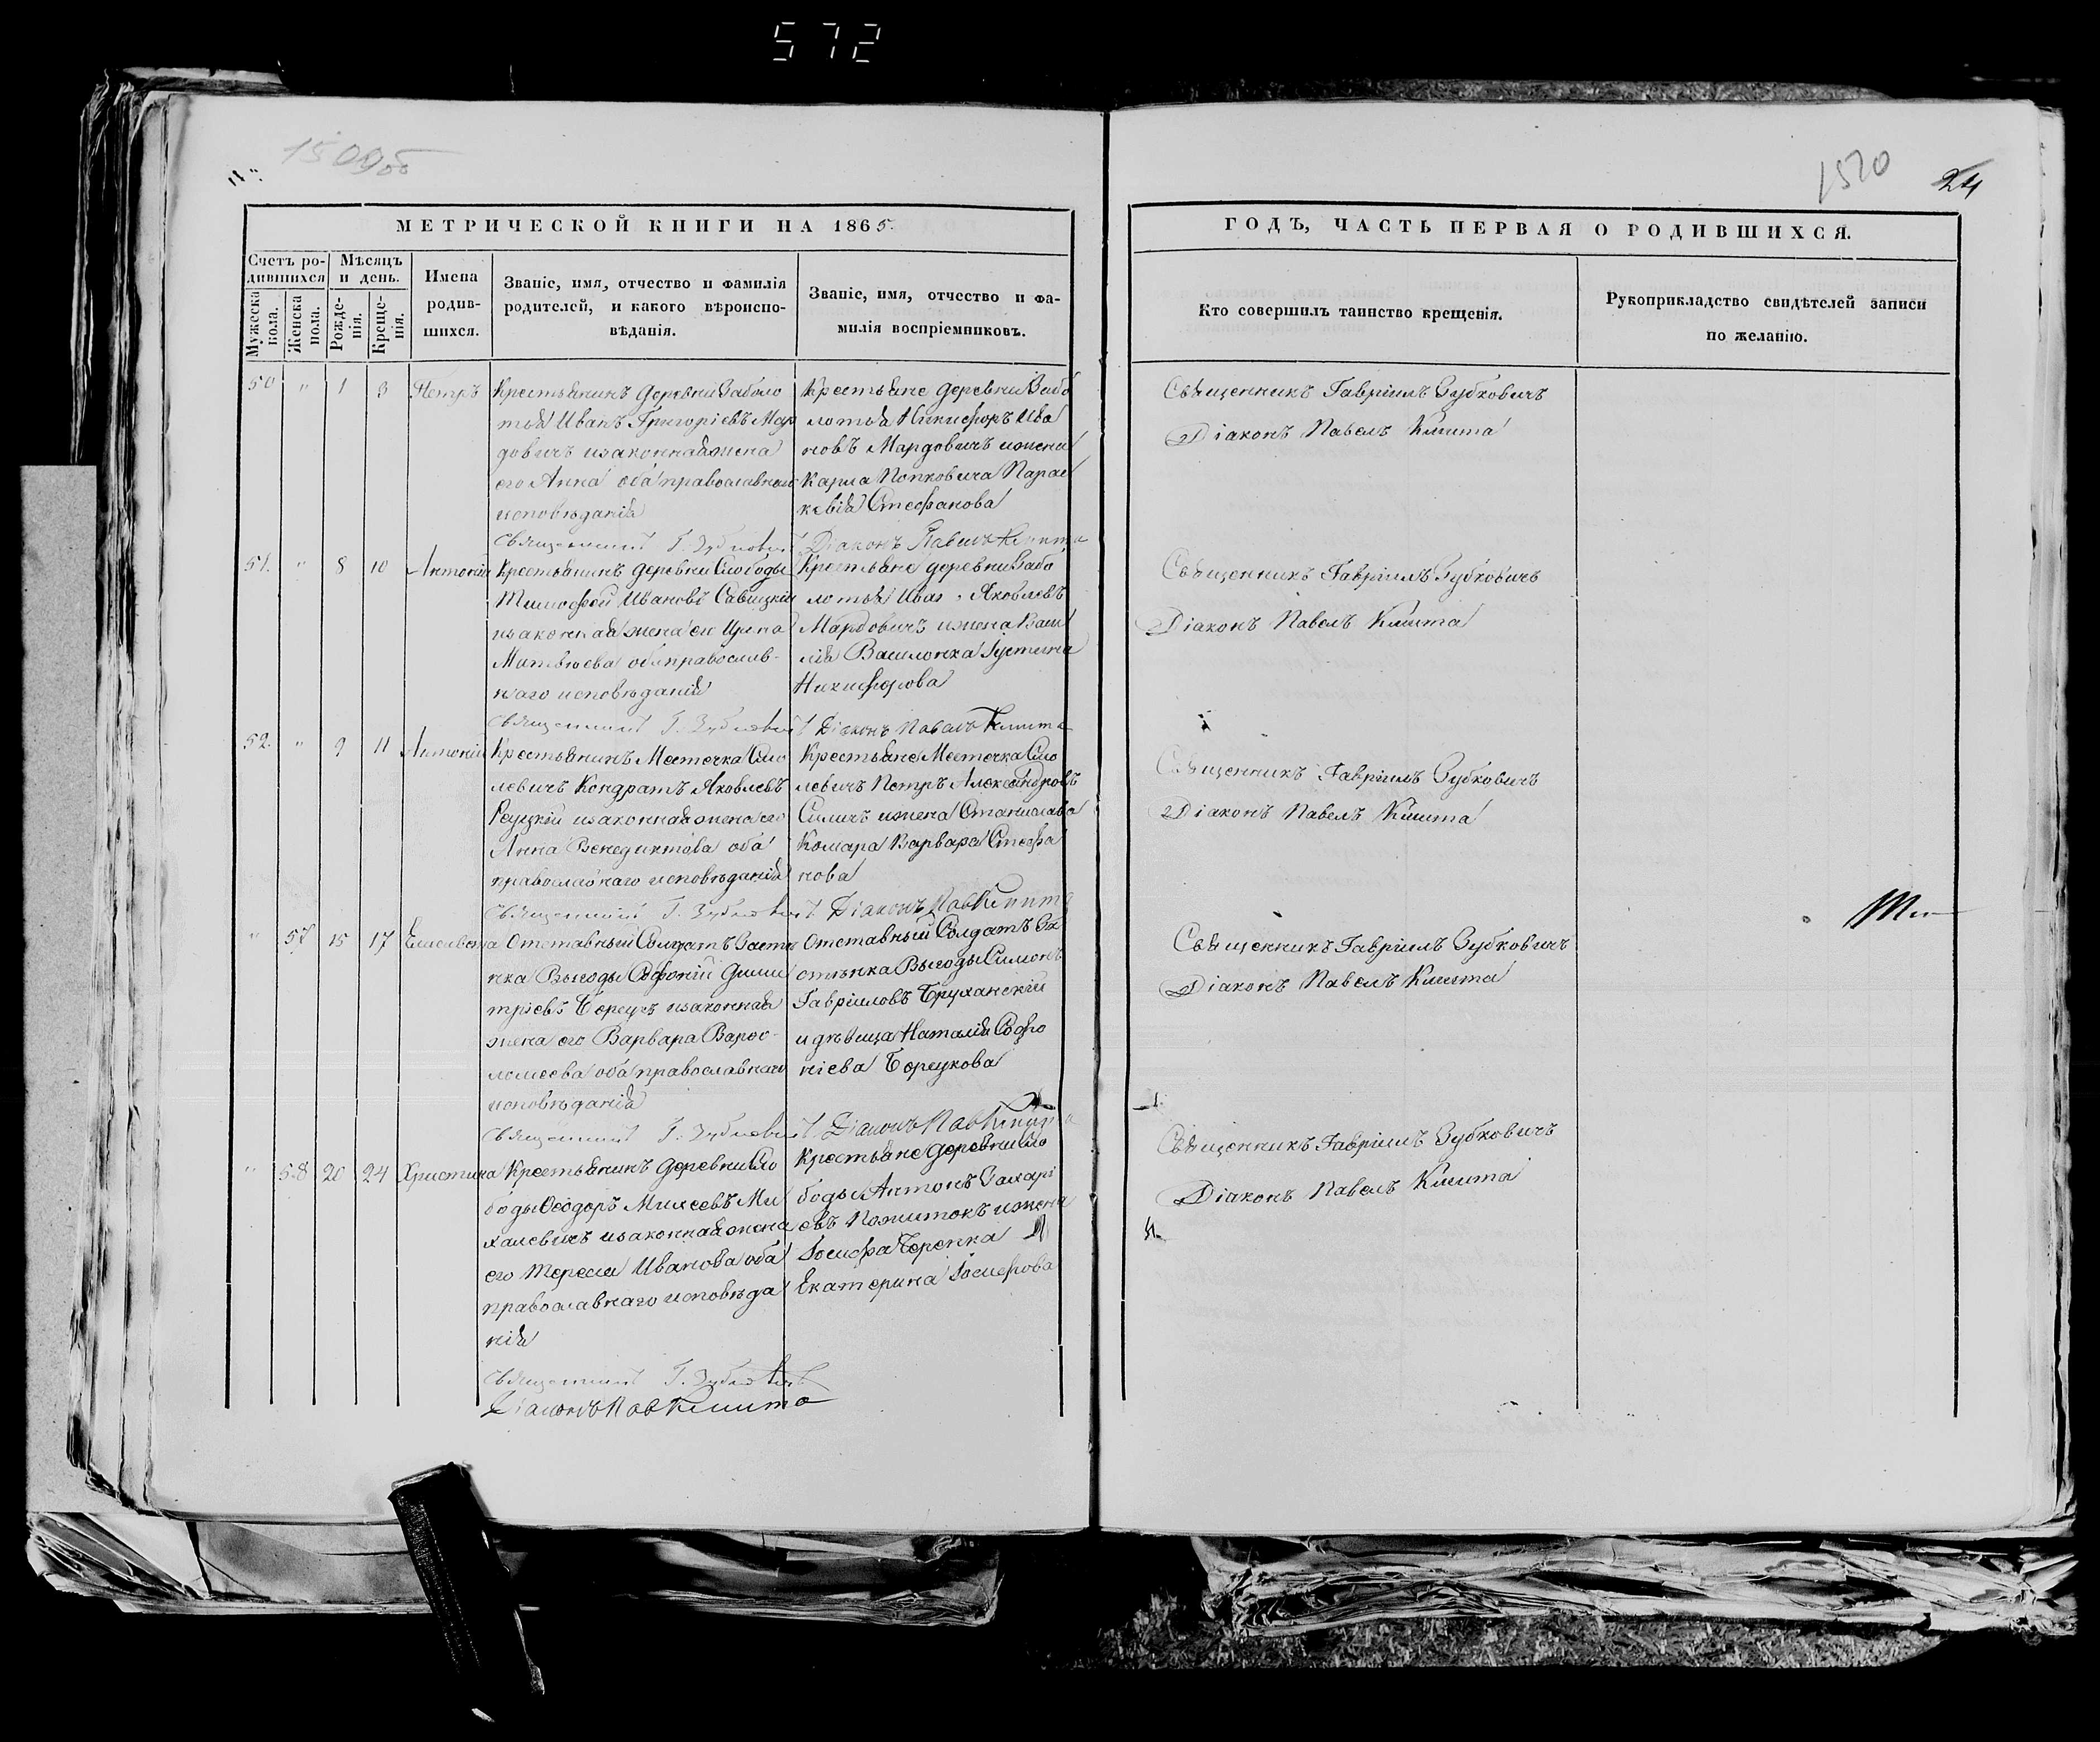 572
1509об
1510
24
МЕТРИЧЕСКОЙ КНИГИ НА 1865.
Счетъ ро-
дившихся
Мѣсяцъ
и день.
Мужеска
пола.
Женска
пола.
Рожде-
нія.
Креще-
нія.
Имена
родив-
шихся.
Званіе, имя, отчество и фамилія
родителей, и какого вѣроиспо-
вѣданія.
Званіе, имя, отчество и фа-
милія воспріемниковъ.
50 " 1 3 Петръ
Крестьянинъ деревни Заболо
тья Иванъ Григоріевъ Мар
довичъ и законная жена
его Анна оба православнаго
исповѣданія
Крестьяне деревни Забо
лотья Никифоръ Ива
новъ Мардовичъ и жена
Карпа Попковича Парас
кевія Стефанова
Священникъ Г. Зубковичъ Діаконъ Павелъ Кмита
51. " 8 10 Антоній
Крестьянинъ деревни Слободы
Тимофей Ивановъ Савицкій
и законная жена его Ирина
Матвѣева оба православ-
наго исповѣданія
Крестьяне деревни Забо
лотья Иван Яковлевъ
Мардовичъ и жена Васи
лія Василонка Іустина
Никифорова
Священникъ Г. Зубковичъ Діаконъ Павелъ Кмита
52. " 9 11 Антоній
Крестьянинъ Местечка Смо
левичъ Кондратъ Яковлевъ
Реуцкій и законная жена его
Анна Венедиктова оба
православнаго исповѣданія
Крестьяне Местечка Смо
левичъ Петръ Александровъ
Силичъ и жена Станислава
Комара Варвара Стефа
нова
Священникъ Г. Зубковичъ Діаконъ Пав Кмита
" 57 15 17 Елисавета
Отставный Солдатъ Засте
нка Выгоды Софоній Дими
тріевъ Борецъ и законная
жена его Варвара Варѳо-
ломеева оба православнаго
исповѣданія
Отставный Солдатъ За
стѣнка Выгоды Симонъ
Гавріиловъ Бруханскій
и дѣвица Наталія Софо
ніева Борецкова
Священникъ Г. Зубковичъ Діаконъ Пав Кмита
" 58 20 24 Христина
Крестьянинъ деревни Сло
боды Ѳеодоръ Михеевъ Ми
халевичъ и законная жена
его Тереса Иванова оба
православнаго исповѣда
нія
Крестьяне деревни Сло
боды Антонъ Захарі
евъ Пожитокъ и жена
Іосифа Беренка
Екатерина Іосифова
Священникъ Г. Зубковичъ
Діаконъ Пав Кмита
ГОДЪ, ЧАСТЬ ПЕРВАЯ О РОДИВШИХСЯ.
Кто совершилъ таинство крещенія.
Рукоприкладство свидѣтелей записи
по желанію.
Священникъ Гавріилъ Зубковичъ
Діаконъ Павелъ Кмита
Священникъ Гавріилъ Зубковичъ
Діаконъ Павелъ Кмита
Священникъ Гавріилъ Зубковичъ
Діаконъ Павелъ Кмита
Священникъ Гавріилъ Зубковичъ
Діаконъ Павелъ Кмита
Священникъ Гавріилъ Зубковичъ
Діаконъ Павелъ Кмита